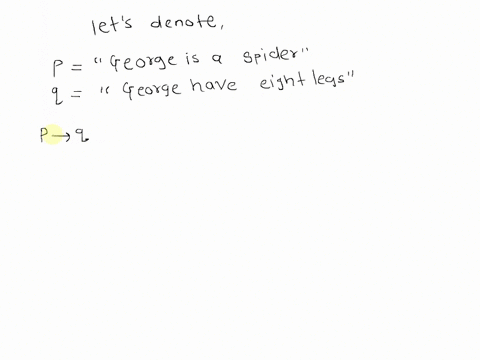 let's denote,
P = "George is a spider"
q = "George have eight legs"
P → q